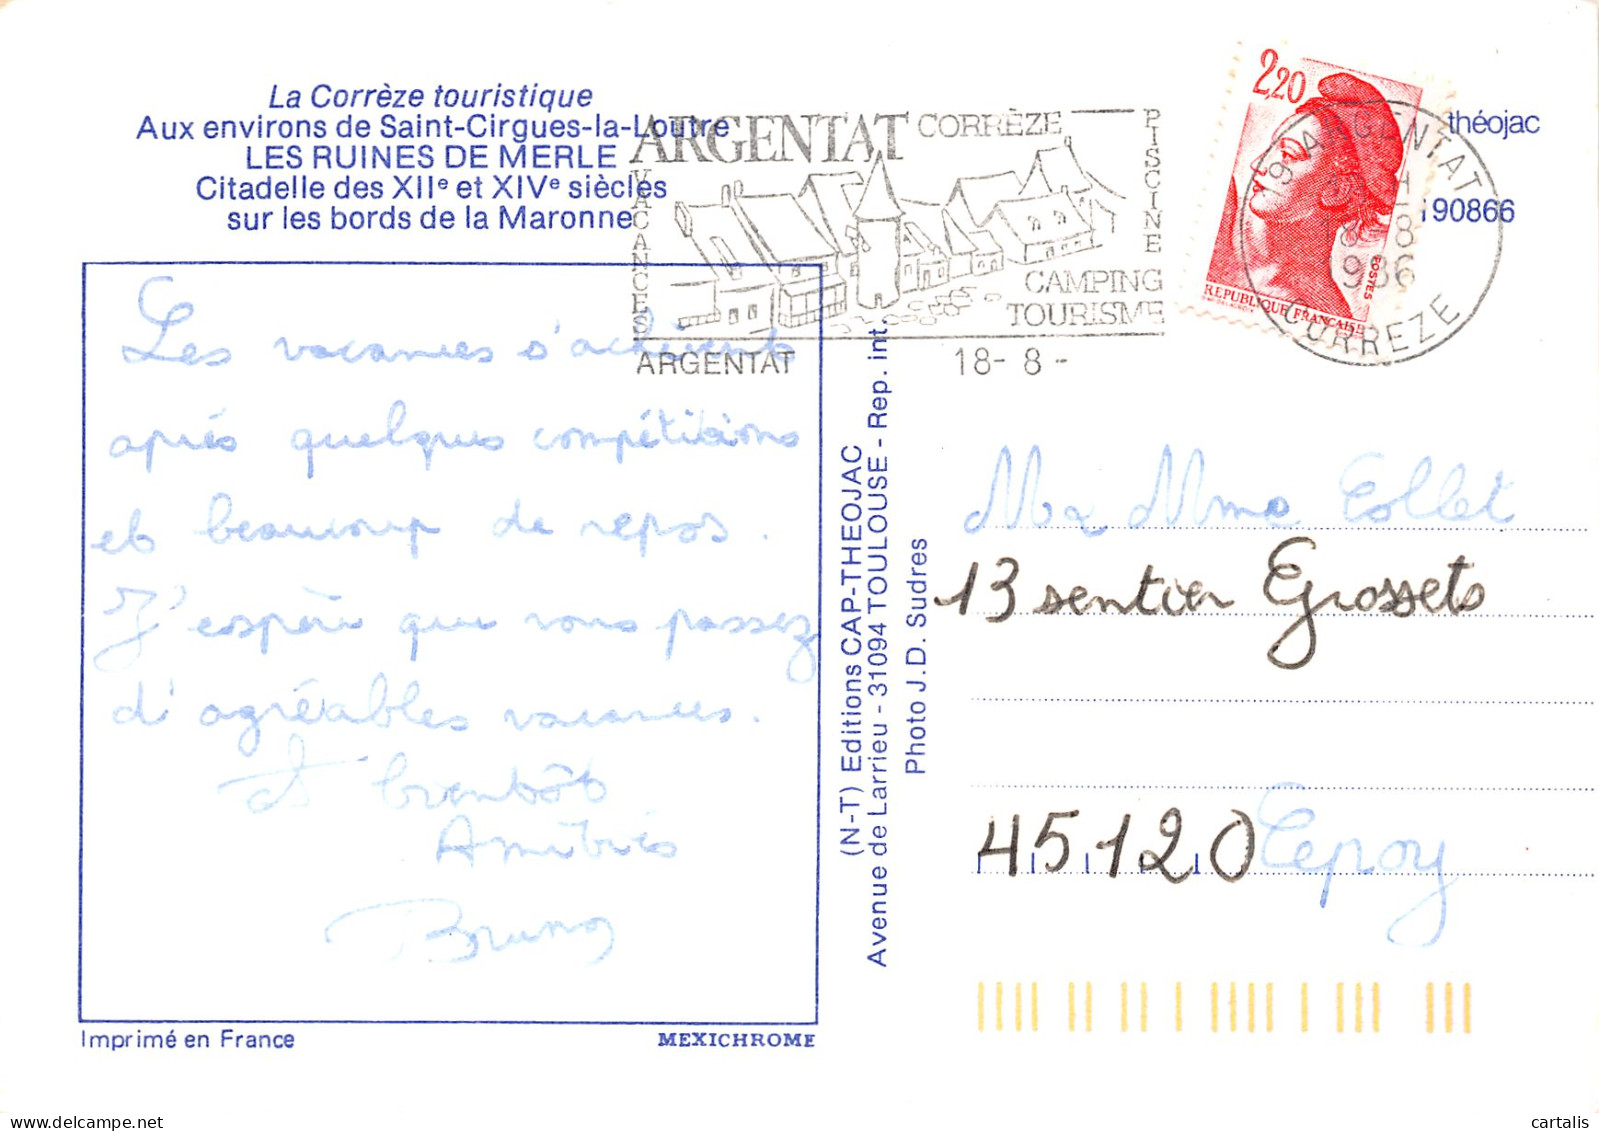 La Corrèze touristique
Aux environs de Saint-Cirgues-la-Loutre
LES RUINES DE MERLE
Citadelle des XIIe et XIVe siècles
sur les bords de la Maronne
ARGENTAT CORRÈZE
VACANCES
PISCINE
CAMPING
TOURISME
ARGENTAT
18- 8 -
2,20
REPUBLIQUE FRANÇAISE
POSTES
19 ARGENTAT
18 - 8
1986
CORREZE
théojac
190866
Les vacances s'achèvent
après quelques compétitions
et beaucoup de repos.
J'espère que vous passez
d'agréables vacances.
A bientôt
Amitiés
Bruno
Imprimé en France
MEXICHROME
(N-T) Editions CAP-THEOJAC
Avenue de Larrieu - 31094 TOULOUSE - Rep. int.
Photo J.D. Sudres
M & Mme Collet
13 sentier Grossets
45120 Cepoy
cartalis